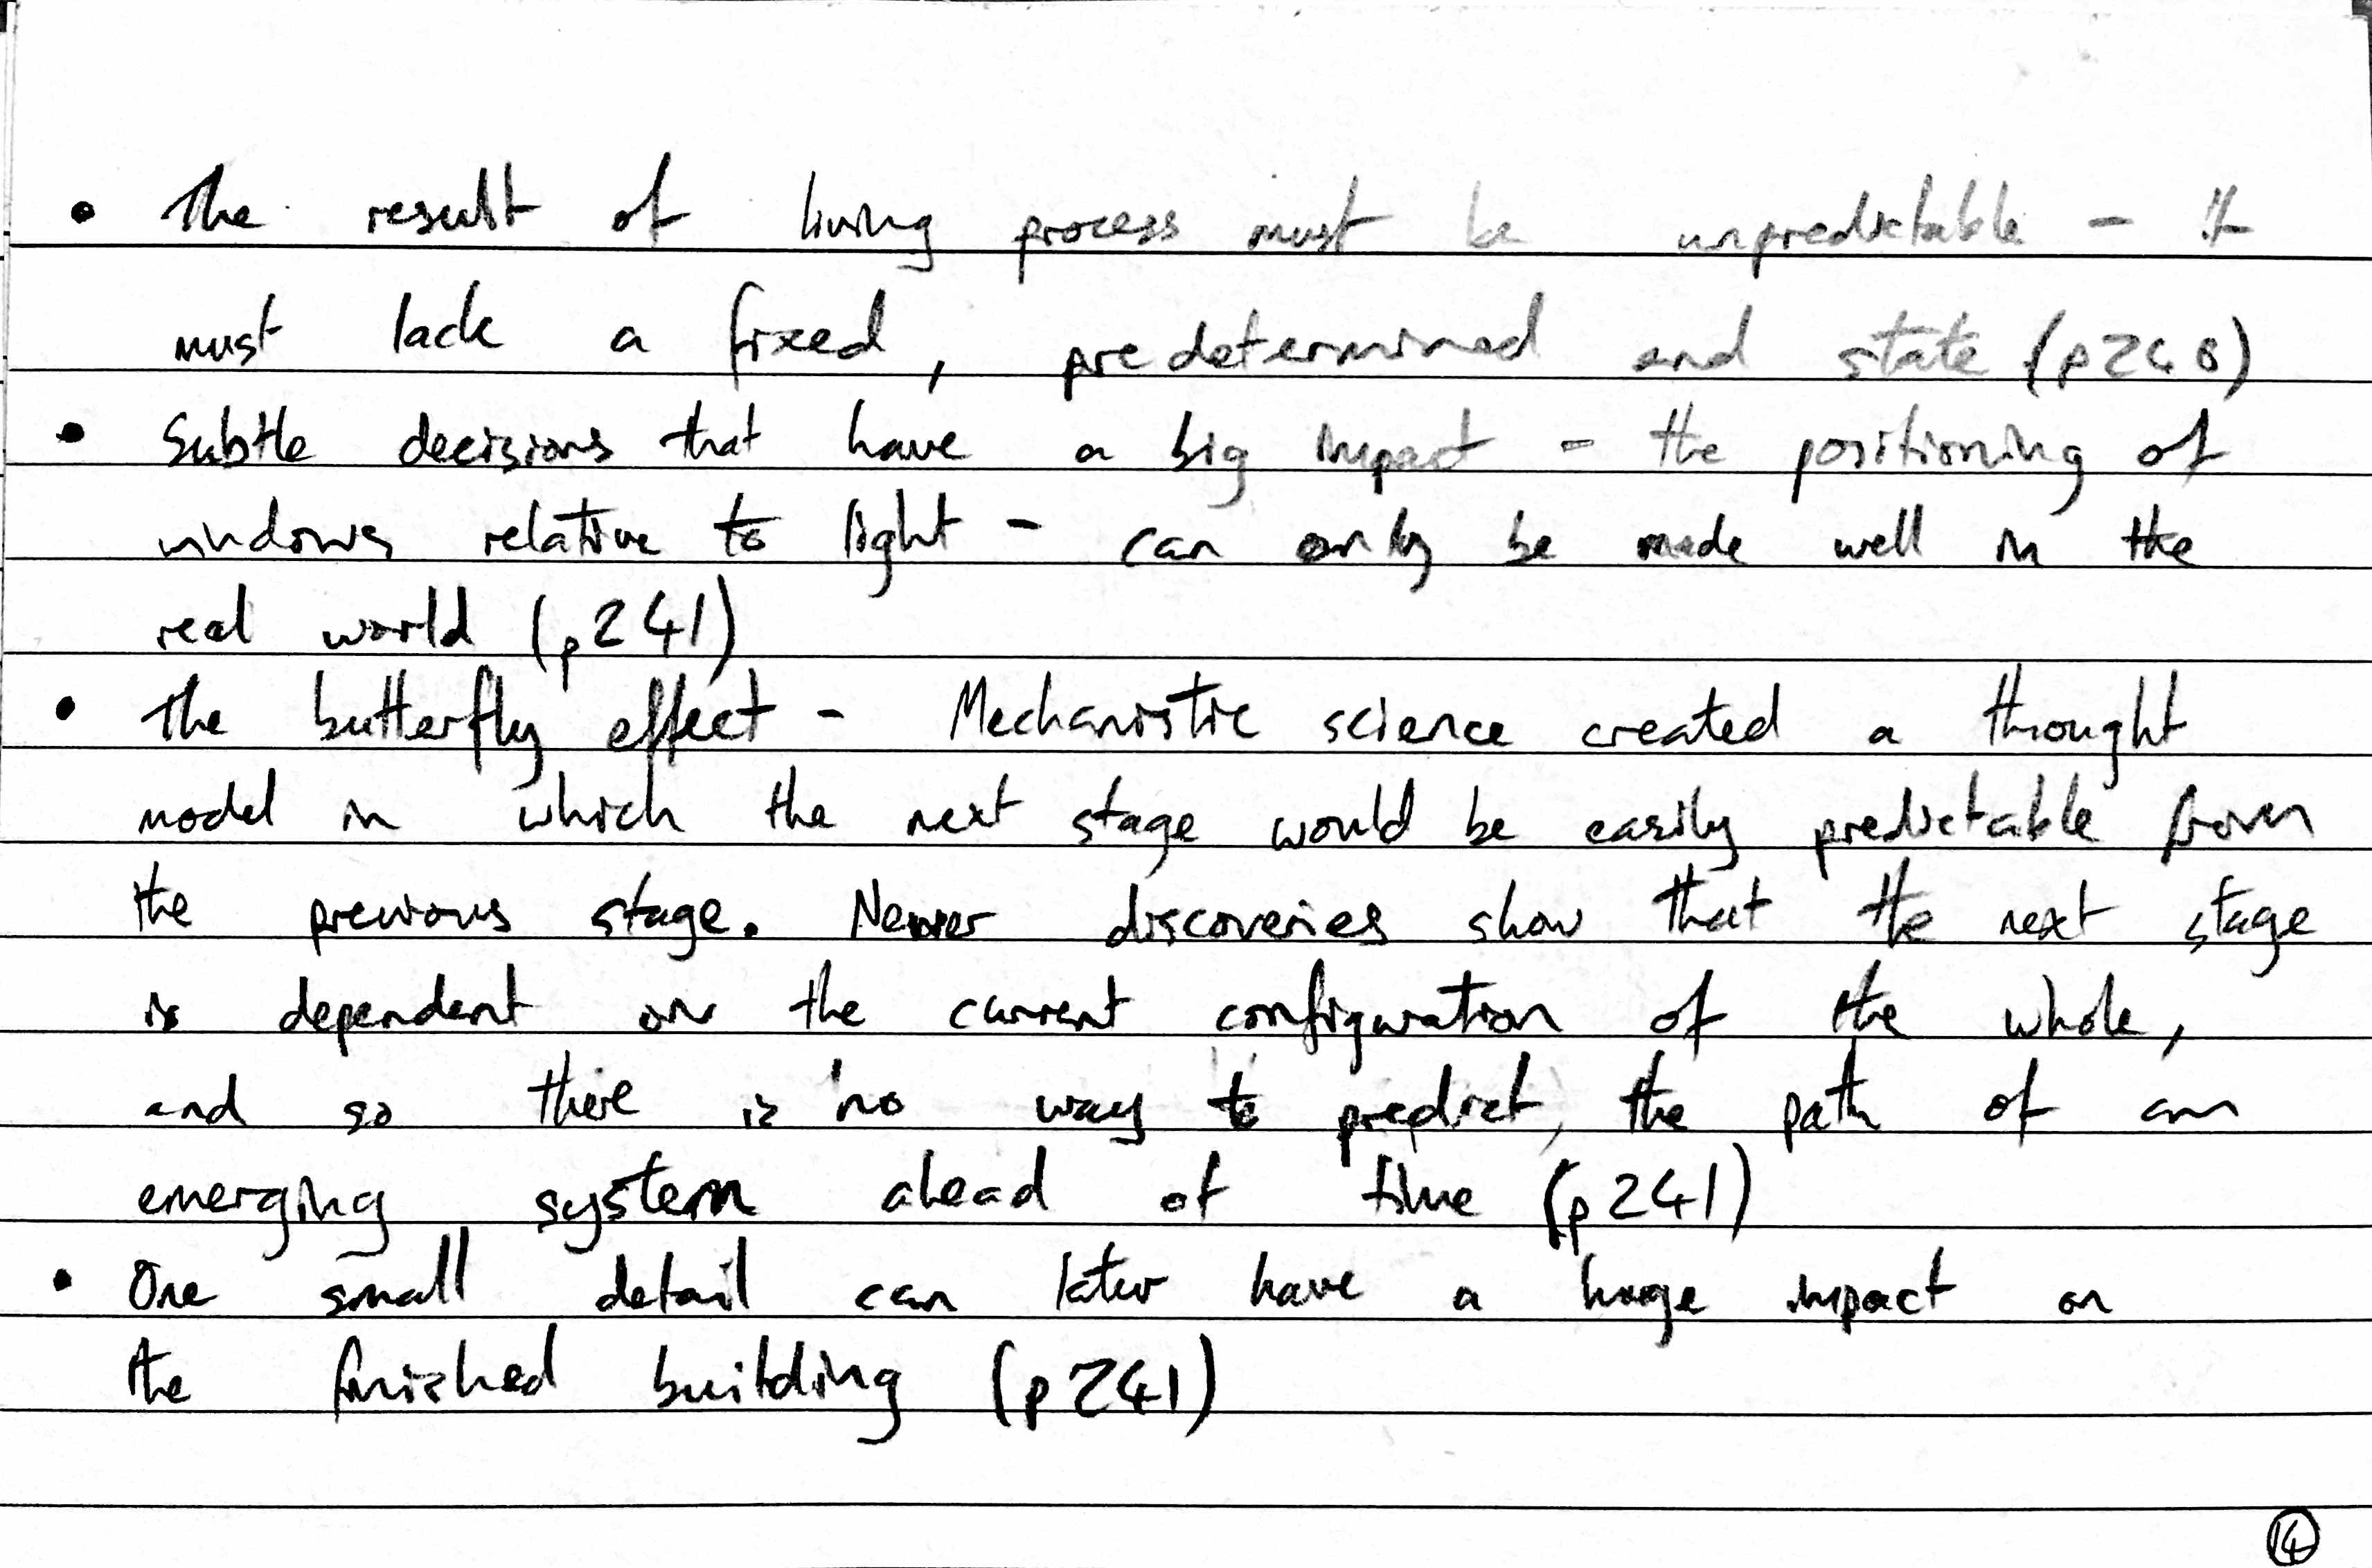 • The result of living process must be unpredictable - it
must lack a fixed, predetermined end state (p240)
• Subtle decisions that have a big impact - the positioning of
windows relative to light - can only be made well in the
real world (p241)
• The butterfly effect - Mechanistic science created a thought
model in which the next stage would be easily predictable from
the previous stage. Newer discoveries show that the next stage
is dependent on the current configuration of the whole,
and so there is no way to predict, the path of an
emerging system ahead of time (p241)
• One small detail can later have a huge impact on
the finished building (p241)
14